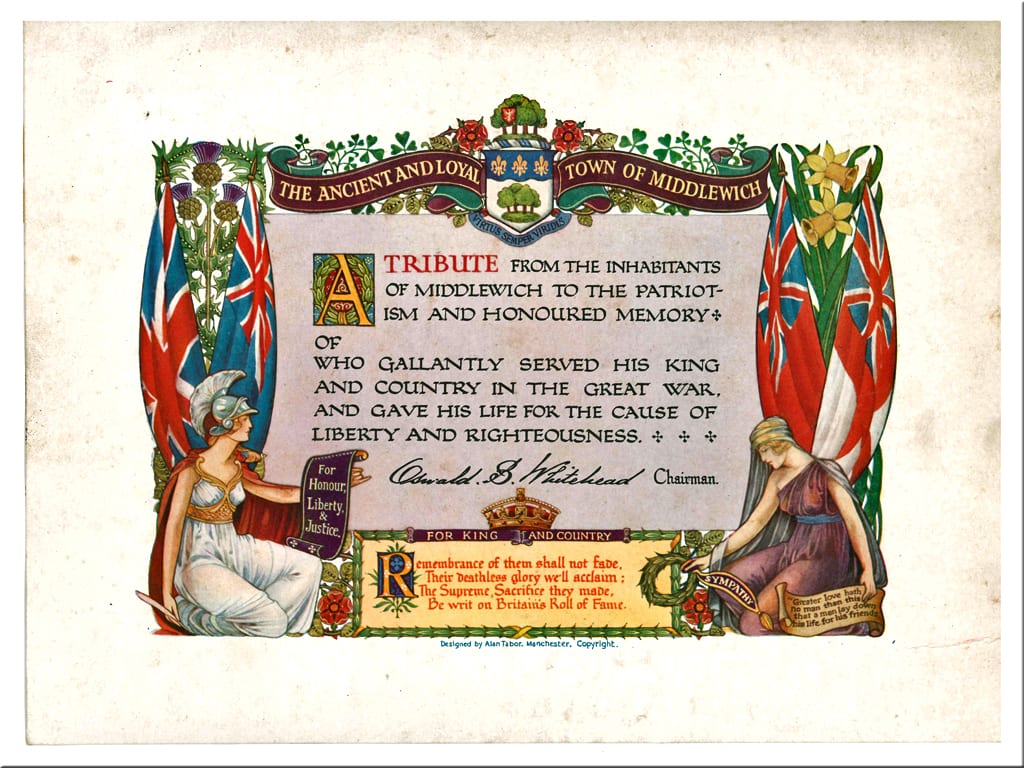 THE ANCIENT AND LOYAL TOWN OF MIDDLEWICH
VIRTUS SEMPER VIRIDIS
A TRIBUTE FROM THE INHABITANTS
OF MIDDLEWICH TO THE PATRIOT-
ISM AND HONOURED MEMORY
OF
WHO GALLANTLY SERVED HIS KING
AND COUNTRY IN THE GREAT WAR,
AND GAVE HIS LIFE FOR THE CAUSE OF
LIBERTY AND RIGHTEOUSNESS.
Oswald. S. Whitehead Chairman.
For
Honour,
Liberty,
&
Justice.
FOR KING AND COUNTRY
Remembrance of them shall not fade,
Their deathless glory we'll acclaim;
The Supreme Sacrifice they made,
Be writ on Britain's Roll of Fame.
SYMPATHY
"Greater love hath
no man than this
that a man lay down
his life for his friends
Designed by Alan Tabor. Manchester. Copyright.